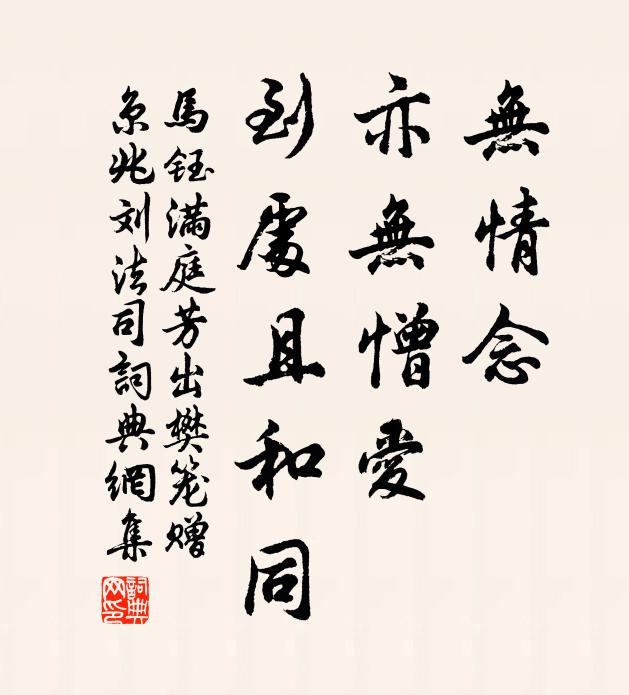 無情念
亦無憎愛
到處且和同
馬鈺滿庭芳出樊笼赠
京兆刘法司詞典網集
詞典网印